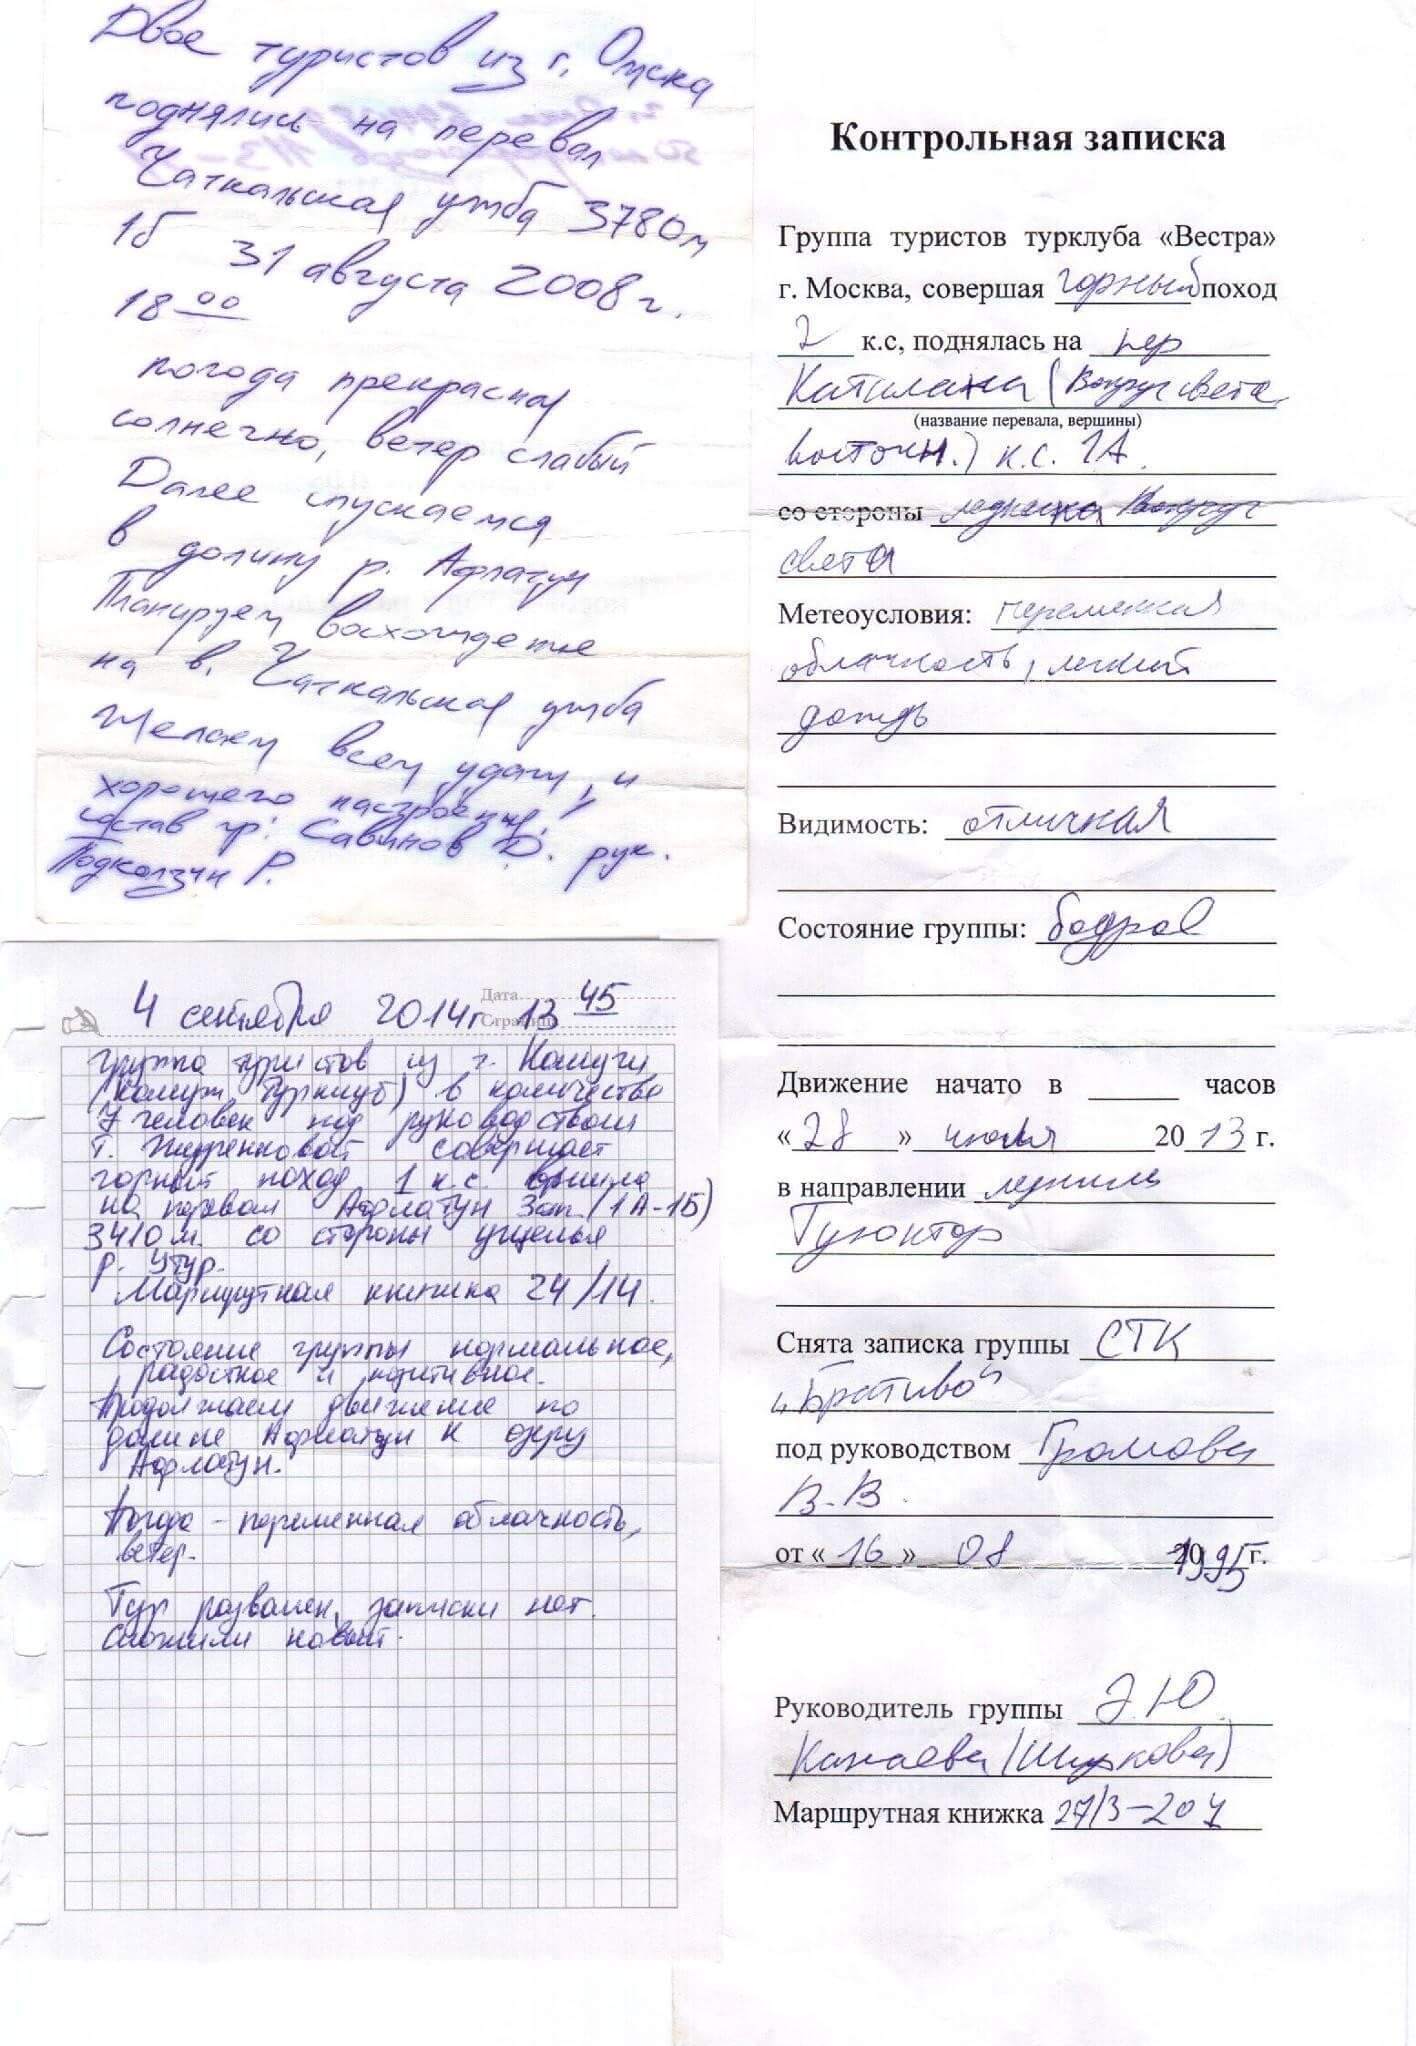 Двое туристов из г. Омска
поднялись на перевал
Чаткальская ужба 3780м
1б 31 августа 2008г.
18 00
погода прекрасная
солнечно, ветер слабый
Далее спускаемся
в долину р. Афлатун
Планируем восхождение
на в. Чаткальская ужба
Желаем всем удачи, и
хорошего настроения!
состав гр: Савинов Д. рук.
Подколзин Р.
Дата
Страница
4 сентября 2014г 13 45
группа туристов из г. Калуги
Турклуб) в количестве
7 человек под руководством
Т. совершает
горный поход 1 к.с. вышла
на перевал Афлатун Зап. (1А-1Б)
3410м. со стороны ущелья
р. Утур.
Маршрутная книжка 24/14.
Состояние группы нормальное,
радостное и позитивное.
Продолжаем движение по
долине Афлатун к озеру
Афлатун.
Погода - переменная облачность,
ветер.
Тур развален, записки нет.
Сложили новый.
Контрольная записка
Группа туристов турклуба «Вестра»
г. Москва, совершая горный поход
2 к.с, поднялась на пер
(Вокруг света
(название перевала, вершины)
восточн.) к.с. 1А.
со стороны ледника Вокруг
света
Метеоусловия: переменная
облачность, легкий
дождь
Видимость: отличная
Состояние группы: бодрое
Движение начато в часов
«28» июля 2013 г.
в направлении
Снята записка группы СТК
под руководством Громова
В.В.
от «16» 08 1995 г.
Руководитель группы Э.Ю.
Канаева
Маршрутная книжка 27/3-207